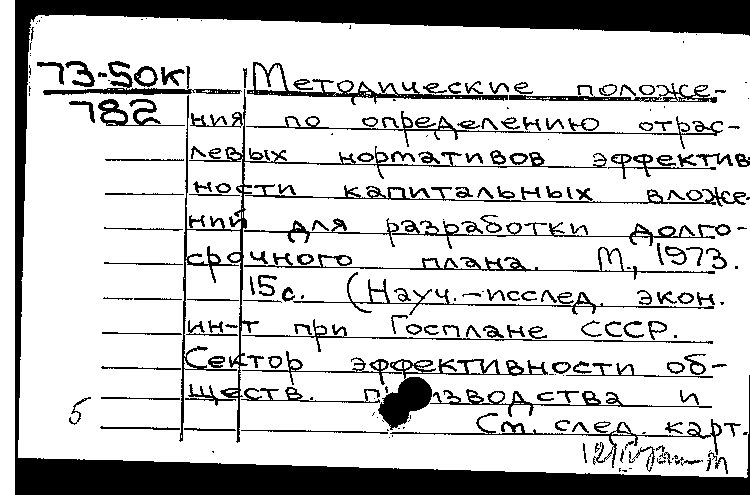 73-50к Методические положе-
782 ния по определению отрас-
левых нормативов эффектив
ности капитальных вложе-
ний для разработки долго-
срочного плана. М., 1973.
15с. (Науч.-исслед. экон.
ин-т при Госплане СССР.
Сектор эффективности об-
ществ. производства и
5 См. след. карт.